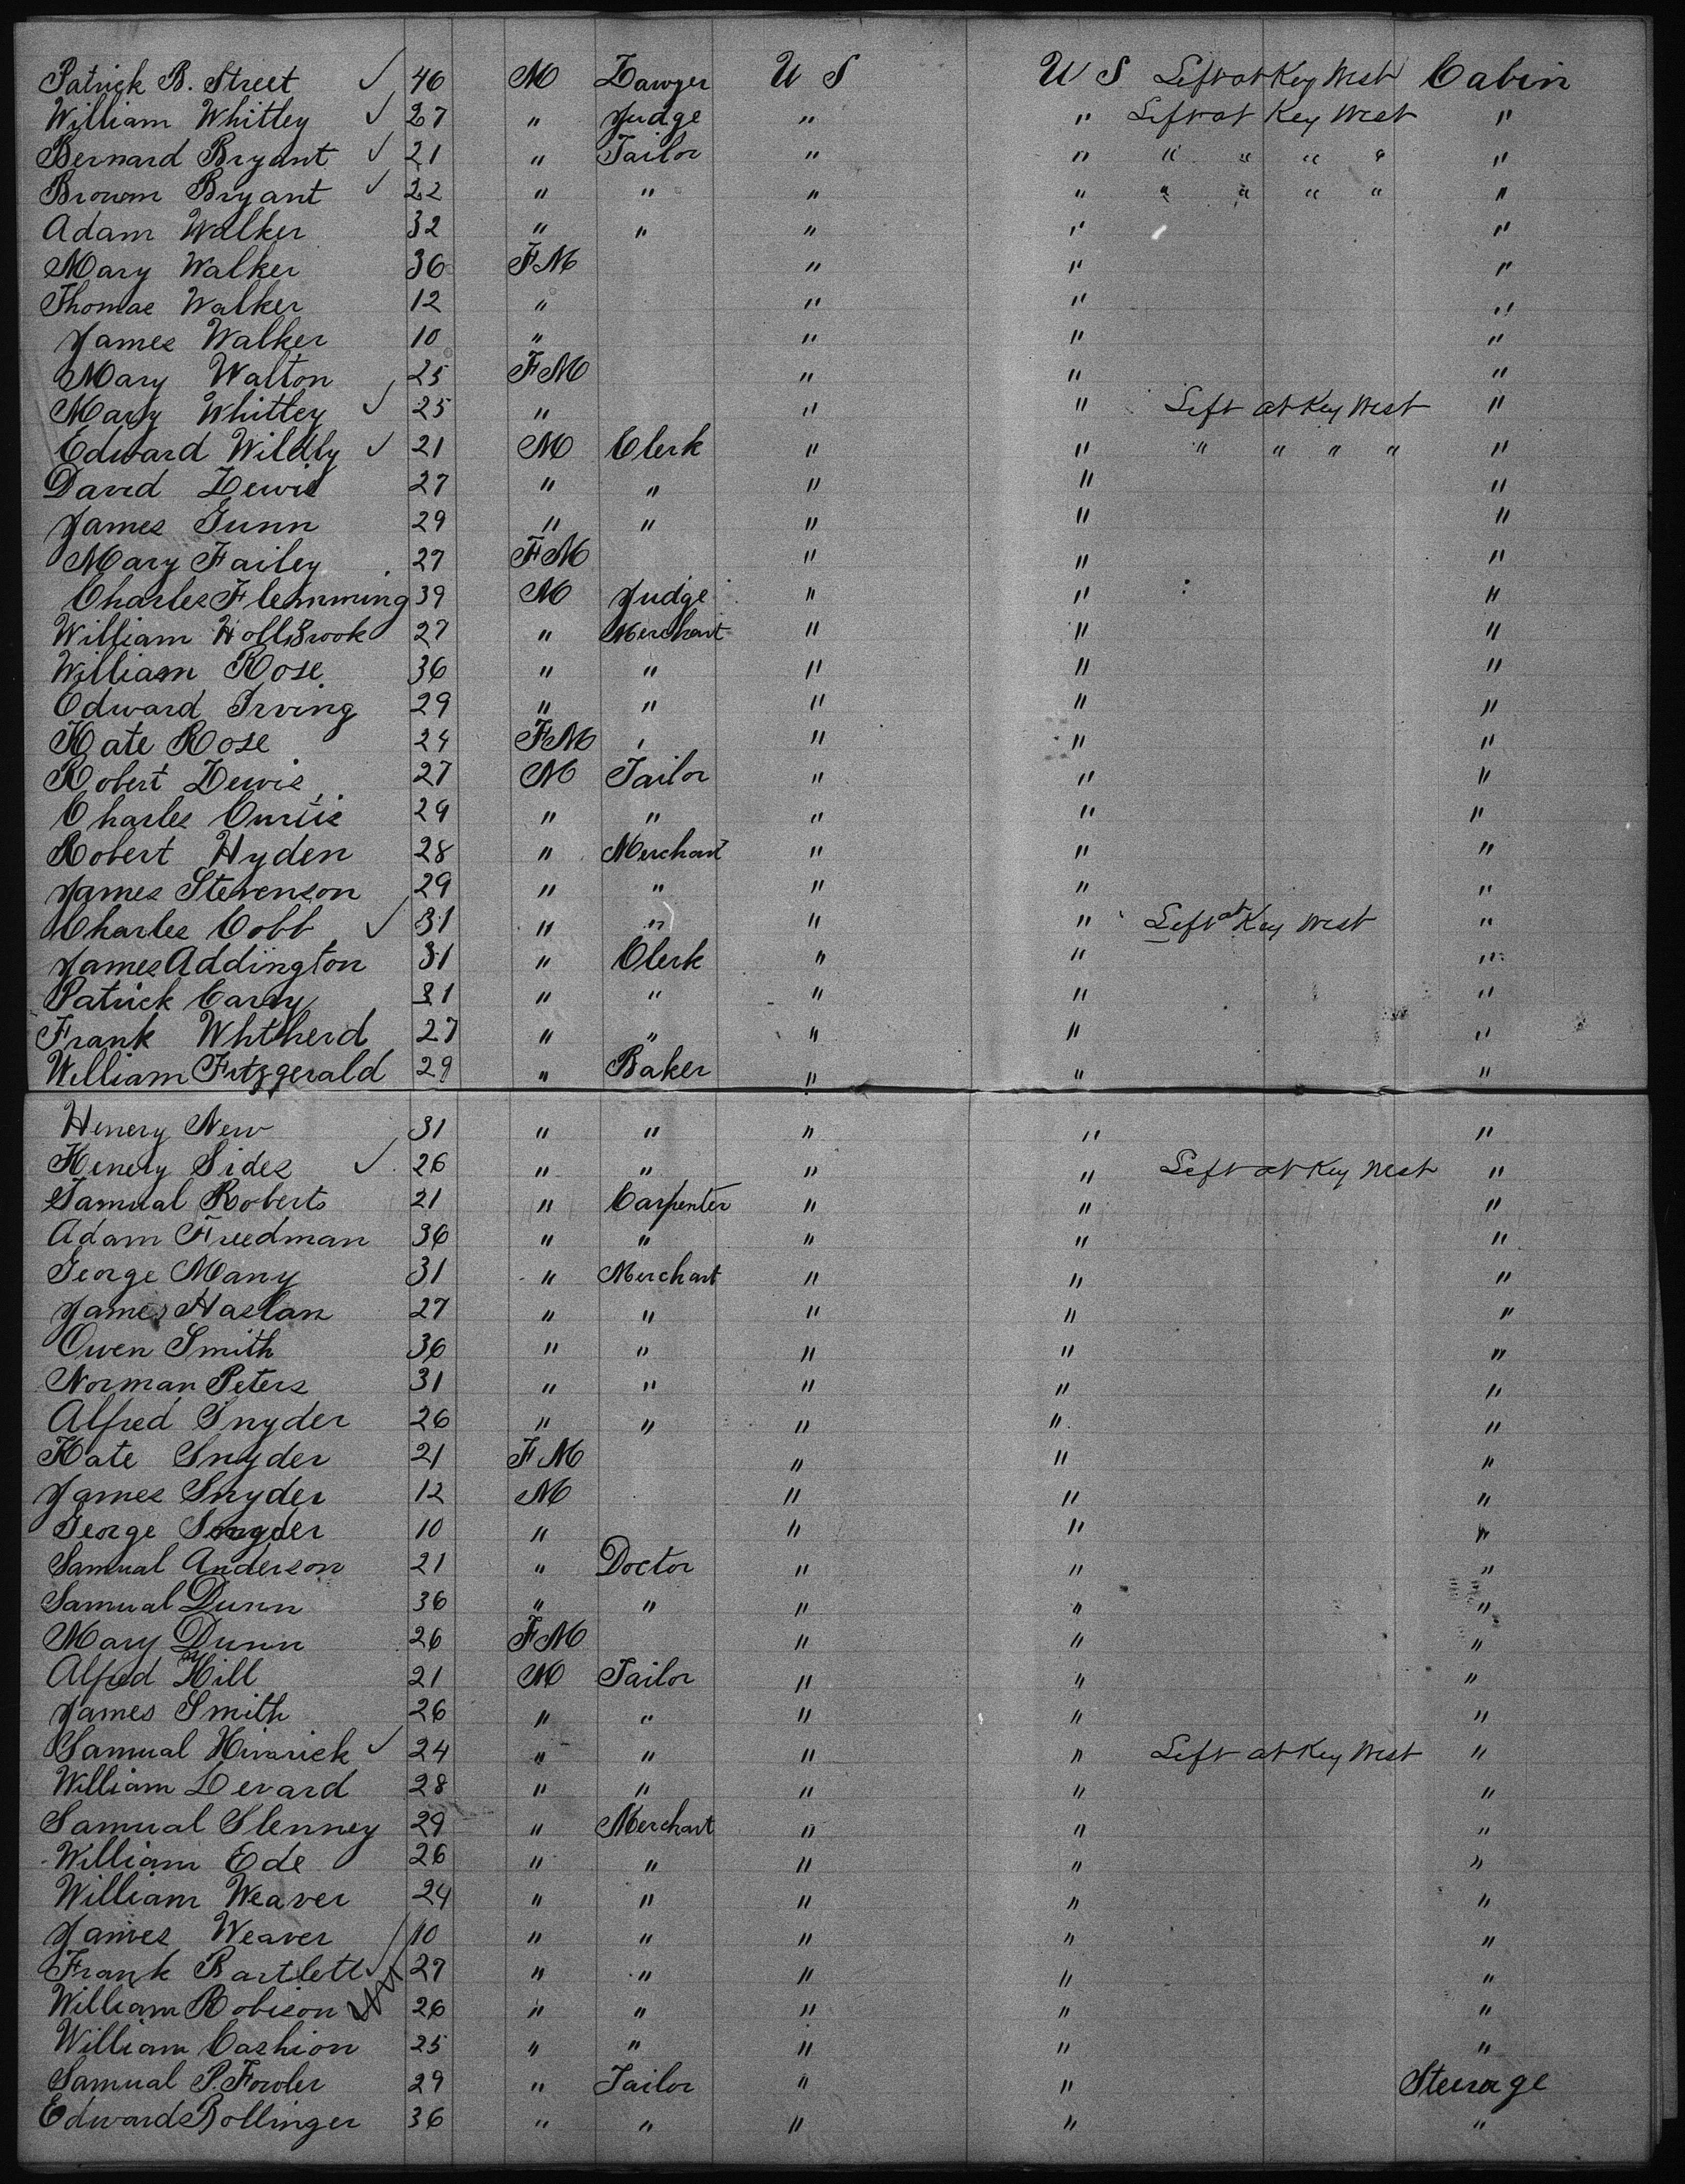 Patrick B. Street ✓ 40 M Lawyer U S U S Left at Key West Cabin
William Whittey ✓ 27 " Judge " " Left at Key West "
Bernard Bryant ✓ 21 " Tailor " " " " " " "
Browm Bryant ✓ 22 " " " " " " " " "
Adam Walker 32 " " " " "
Mary Walker 36 FM " " "
Thomas Walker 12 " " " "
James Walker 10 " " " "
Mary Walton 25 FM " " "
Mary Whittey ✓ 25 " " " Left at Key West "
Edward Wildby ✓ 21 M Clerk " " " " " " "
David Lewis 27 " " " " "
James Gunn 29 " " " " "
Mary Failey 27 FM " " "
Charles Flemming 39 M Judge " " "
William Hollbrook 27 " Merchant " " "
William Rose 36 " " " " "
Edward Irving 29 " " " " "
Kate Rose 24 FM " " "
Robert Lewis 27 M Tailor " " "
Charles Curtis 29 " " " " "
Robert Hyden 28 " Merchant " " "
James Stevenson 29 " " " " "
Charles Cobb ✓ 31 " " " " Left at Key West "
James Addington 31 " Clerk " " "
Patrick Carey 31 " " " " "
Frank Whtherd 27 " " " " "
William Fitzgerald 29 " Baker " " "
Henery New 31 " " " " "
Henery Sides ✓ 26 " " " " Left at Key West "
Samual Roberts 21 " Carpenter " " "
Adam Freedman 36 " " " " "
George Many 31 " Merchant " " "
James Haslan 27 " " " " "
Owen Smith 36 " " " " "
Norman Peters 31 " " " " "
Alfred Snyder 26 " " " " "
Kate Snyder 21 FM " " "
James Snyder 12 M " " "
George Snyder 10 " " " "
Samual Anderson 21 " Doctor " " "
Samual Dunn 36 " " " " "
Mary Dunn 26 FM " " "
Alfred Hill 21 M Tailor " " "
James Smith 26 " " " " "
Samual ✓ 24 " " " " Left at Key West "
William Levard 28 " " " " "
Samual Slenney 29 " Merchant " " "
William Ede 26 " " " " "
William Weaver 24 " " " " "
James Weaver 10 " " " " "
Frank Bartlett ✓ 27 " " " " "
William Robison 26 " " " " "
William Cashion 25 " " " " "
Samual P. Fowler 29 " Tailor " " Steerage
Edward Bollinger 36 " " " " "